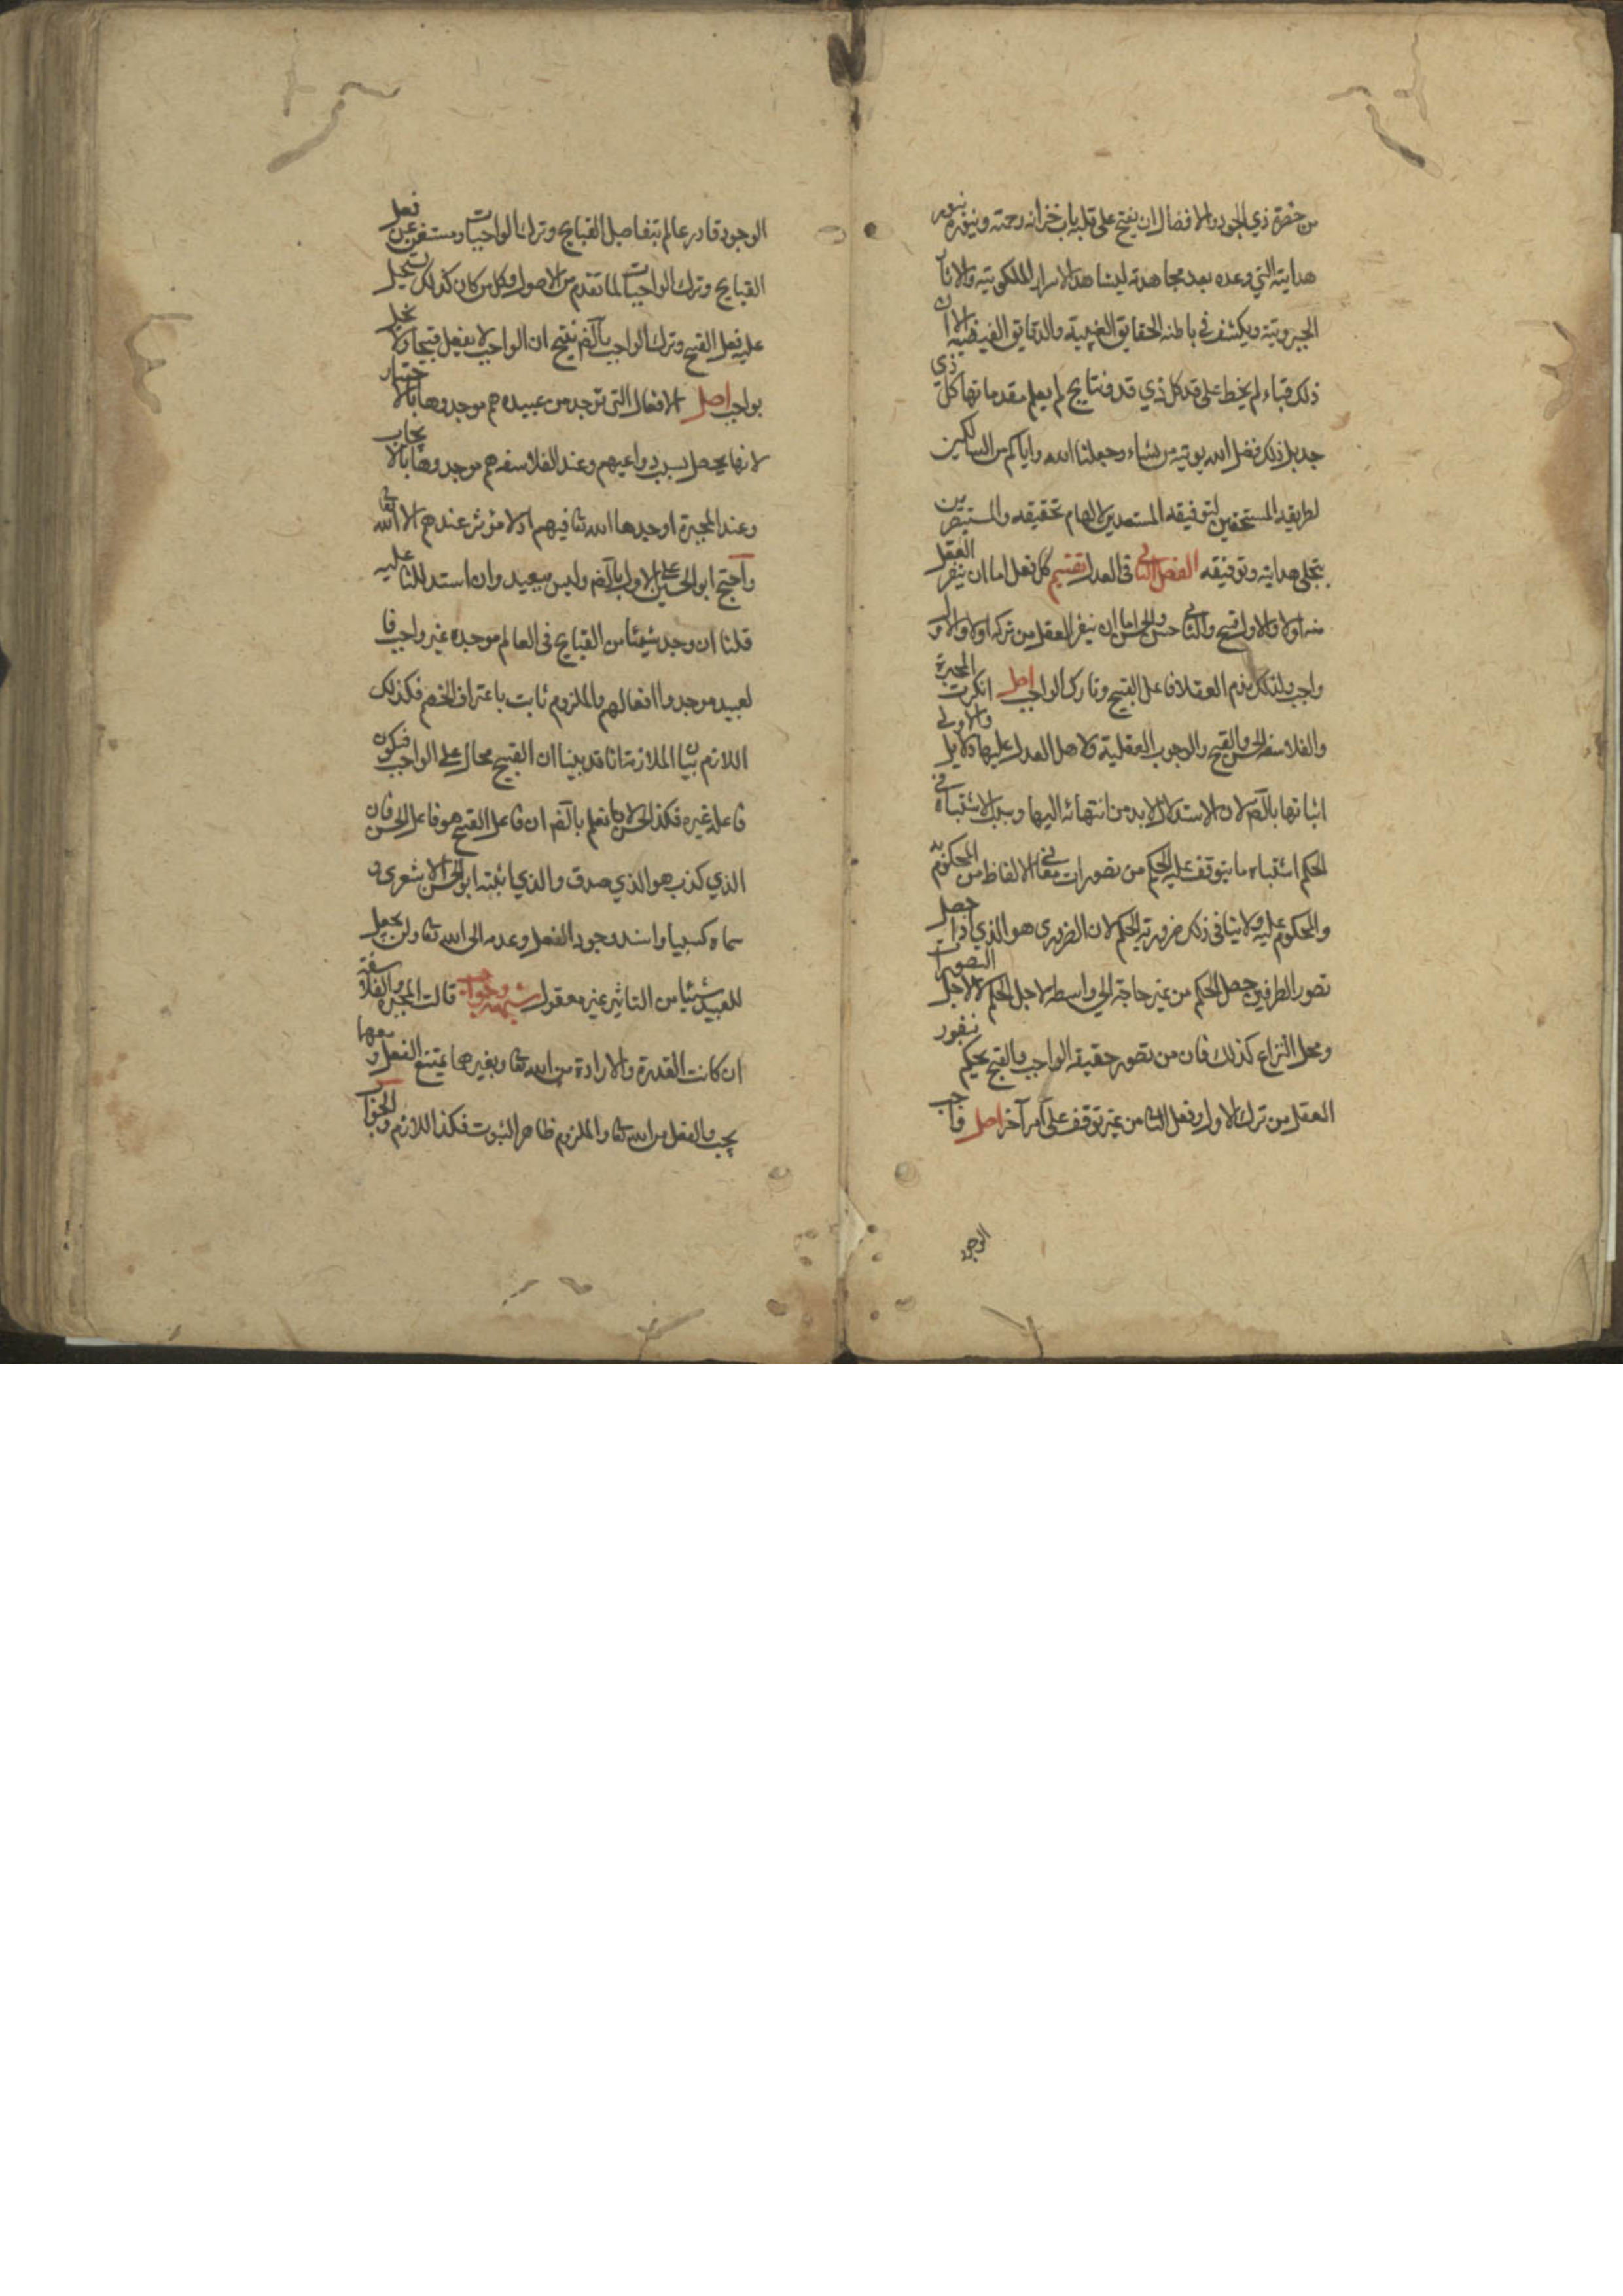 من حضرة ذي الجود والافضال ان يفتح على قلبه باب خزانه رحمته وينوره بنور
هدايته التي وعده بعد مجاهدته ليشاهد الاسرار الملكوتية والاثار
الجبروتية ويكشف في باطنه الحقايق الغيبية والدقايق الفيضية الا ان
ذلك قباء لم يخط على قد كل ذي قد ونتايج لم يعلم مقدماتها كل ذي
جد بل ذلك فضل الله يوتيه من يشاء وجعلنا الله واياكم من السالكين
لطريقه المستحقين لتوفيقه المستعدين لالهام تحقيقه والمستبصرين
بتجلي هدايته وتوفيقه الفصل الثاني في العدل تقسيم كل فعل اما ان ينفر العقل
منه اولا والاول قبيح والثاني حسن والحسن اما ان ينفر العقل من تركه اولا والاول
واجب ولذلك يذم العقلا فاعل القبيح وتارك الواجب اصل انكرت المجبرة
والفلاسفه الحسن والقبح والوجوب العقلية ولاهل العدل عليها دلايل والاولى
اثباتها بالضم لان الاستدلال لا بد من انتهائه اليها وسبب الاشتباه في
الحكم اشتباه ما يتوقف عليه الحكم من تصورات معاني الالفاظ من المحكوم به
والمحكوم عليه ولا ينافي ذلك ضرورية الحكم لان الضروري هو الذي اذا حصل
تصور الطرفين حصل الحكم من غير حاجة الى واسطه لاجل الحكم لا لاجل التصورات
ومحل النزاع كذلك فان من تصور حقيقه الواجب والقبيح يحكم بنفور
العقل من ترك الاول وفعل الثا من غير توقف على امر آخر اصل واجب
الوجود
الوجود قادر عالم بتفاصيل القبايح وترك الواجبات ومستغن عن فعل
القبايح وترك الواجبات لما تقدم من الاصول وكل من كان كذلك يستحيل
عليه فعل القبيح وترك الواجب بالضم ينتج ان الواجب لا يفعل قبيحا ولا يخل
بواجب اصل الافعال التي توجد من عبيده هم موجدوها بالاختيار
لانها يحصل بسبب دواعيهم وعند الفلاسفه هم موجدوها بالايجاب
وعند المجبرة اوجدها الله تعا فيهم اذ لا مؤثر عندهم الا الله تعا
واحتج ابو الحسين على الاول بالضم وليس ببعيد وان استدللنا عليه
قلنا ان وجد شيئا من القبايح في العالم موجده غير واجب فا
لعبيد موجدوا افعالهم والملزوم ثابت باعتراف الخصم فكذلك
اللازم بيان الملازمة انا قد بينا ان القبيح محال على الواجب فيكون
فاعله غيره فكذا الحسن لانا نعلم بالضم ان فاعل القبيح هو فاعل الحسن فان
الذي كذب هو الذي صدق والذي اثبته ابو الحسن الاشعري و
سماه كسبيا واسند وجود الفعل وعدمه الى الله تعا ولن يجعل
للعبيد شيئا من التاثير غير معقول شبهة وجواب قالت المجبرة والفلاسفة
ان كانت القدرة والارادة من الله تعا وبغيرهما يمتنع الفعل ومعها
يجب والفعل من الله تعا والملزوم ظاهر الثبوت فكذا اللازم والجواب